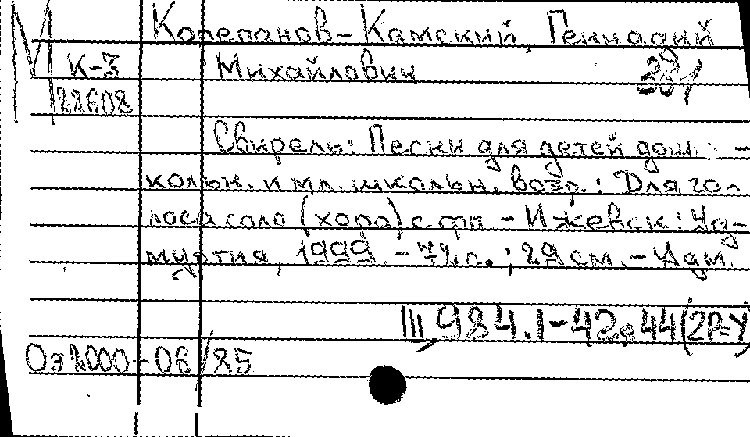 М Корепанов-Камский, Геннадий
К-3 Михайлович
22608
Свирель: Песни для детей дош-
кольн. и мл. школьн. возр.: Для го-
лоса соло (хора) с фп - Ижевск: Уд-
муртия, 1999. - 74 с.; 29 см. - Удм.
984.1-42.44(2Р-У)
Оз 2000-06/85